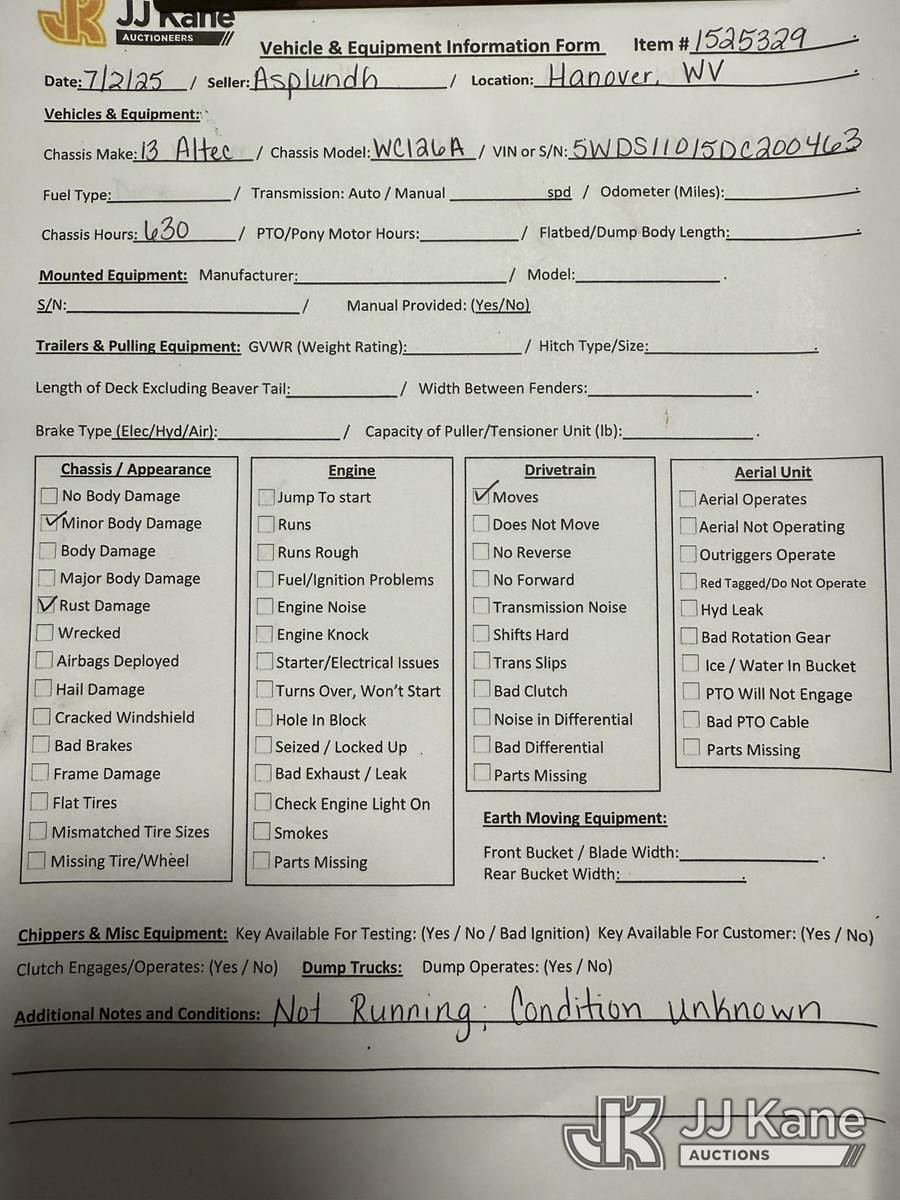 JJ Kane
AUCTIONEERS
Vehicle & Equipment Information Form Item # 1525329
Date: 7/2/25 / Seller: Asplundh / Location: Hanover, WV
Vehicles & Equipment:
Chassis Make: 13 Altec / Chassis Model: WC126A / VIN or S/N: 5WDS11015DC200463
Fuel Type: / Transmission: Auto / Manual spd / Odometer (Miles):
Chassis Hours: 630 / PTO/Pony Motor Hours: / Flatbed/Dump Body Length:
Mounted Equipment: Manufacturer: / Model: .
S/N: / Manual Provided: (Yes/No)
Trailers & Pulling Equipment: GVWR (Weight Rating): / Hitch Type/Size: .
Length of Deck Excluding Beaver Tail: / Width Between Fenders: .
Brake Type (Elec/Hyd/Air): / Capacity of Puller/Tensioner Unit (lb): .
Chassis / Appearance
No Body Damage
Minor Body Damage
Body Damage
Major Body Damage
Rust Damage
Wrecked
Airbags Deployed
Hail Damage
Cracked Windshield
Bad Brakes
Frame Damage
Flat Tires
Mismatched Tire Sizes
Missing Tire/Wheel
Engine
Jump To start
Runs
Runs Rough
Fuel/Ignition Problems
Engine Noise
Engine Knock
Starter/Electrical Issues
Turns Over, Won't Start
Hole In Block
Seized / Locked Up
Bad Exhaust / Leak
Check Engine Light On
Smokes
Parts Missing
Drivetrain
Moves
Does Not Move
No Reverse
No Forward
Transmission Noise
Shifts Hard
Trans Slips
Bad Clutch
Noise in Differential
Bad Differential
Parts Missing
Aerial Unit
Aerial Operates
Aerial Not Operating
Outriggers Operate
Red Tagged/Do Not Operate
Hyd Leak
Bad Rotation Gear
Ice / Water In Bucket
PTO Will Not Engage
Bad PTO Cable
Parts Missing
Earth Moving Equipment:
Front Bucket / Blade Width: .
Rear Bucket Width: .
Chippers & Misc Equipment: Key Available For Testing: (Yes / No / Bad Ignition) Key Available For Customer: (Yes / No)
Clutch Engages/Operates: (Yes / No) Dump Trucks: Dump Operates: (Yes / No)
Additional Notes and Conditions: Not Running; Condition unknown
JJ Kane
AUCTIONS